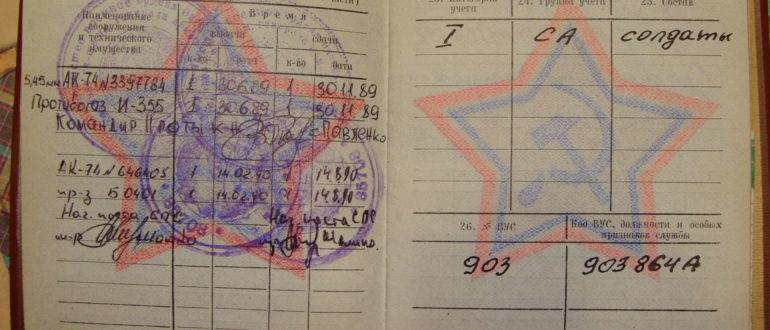 сти)
Наименование вооружения и технического имущества
Время
выдачи
сдачи
к-во
дата
к-во
дата
5,45 мм АК-74 N3397784 1 30.6.89 1 30.11.89
Противогаз И-355 1 30.6.89 1 30.11.89
Командир роты к-н Павженко
АК-74 N 646405 1 14.02.90 1 14.8.90
пр-з Б0401 1 14.02.90 1 14.8.90
м-р
учета
24. Группа учета
25. Состав
I
СА
солдаты
26. № ВУС
Код ВУС, должности и особых признаков службы
903
903864А